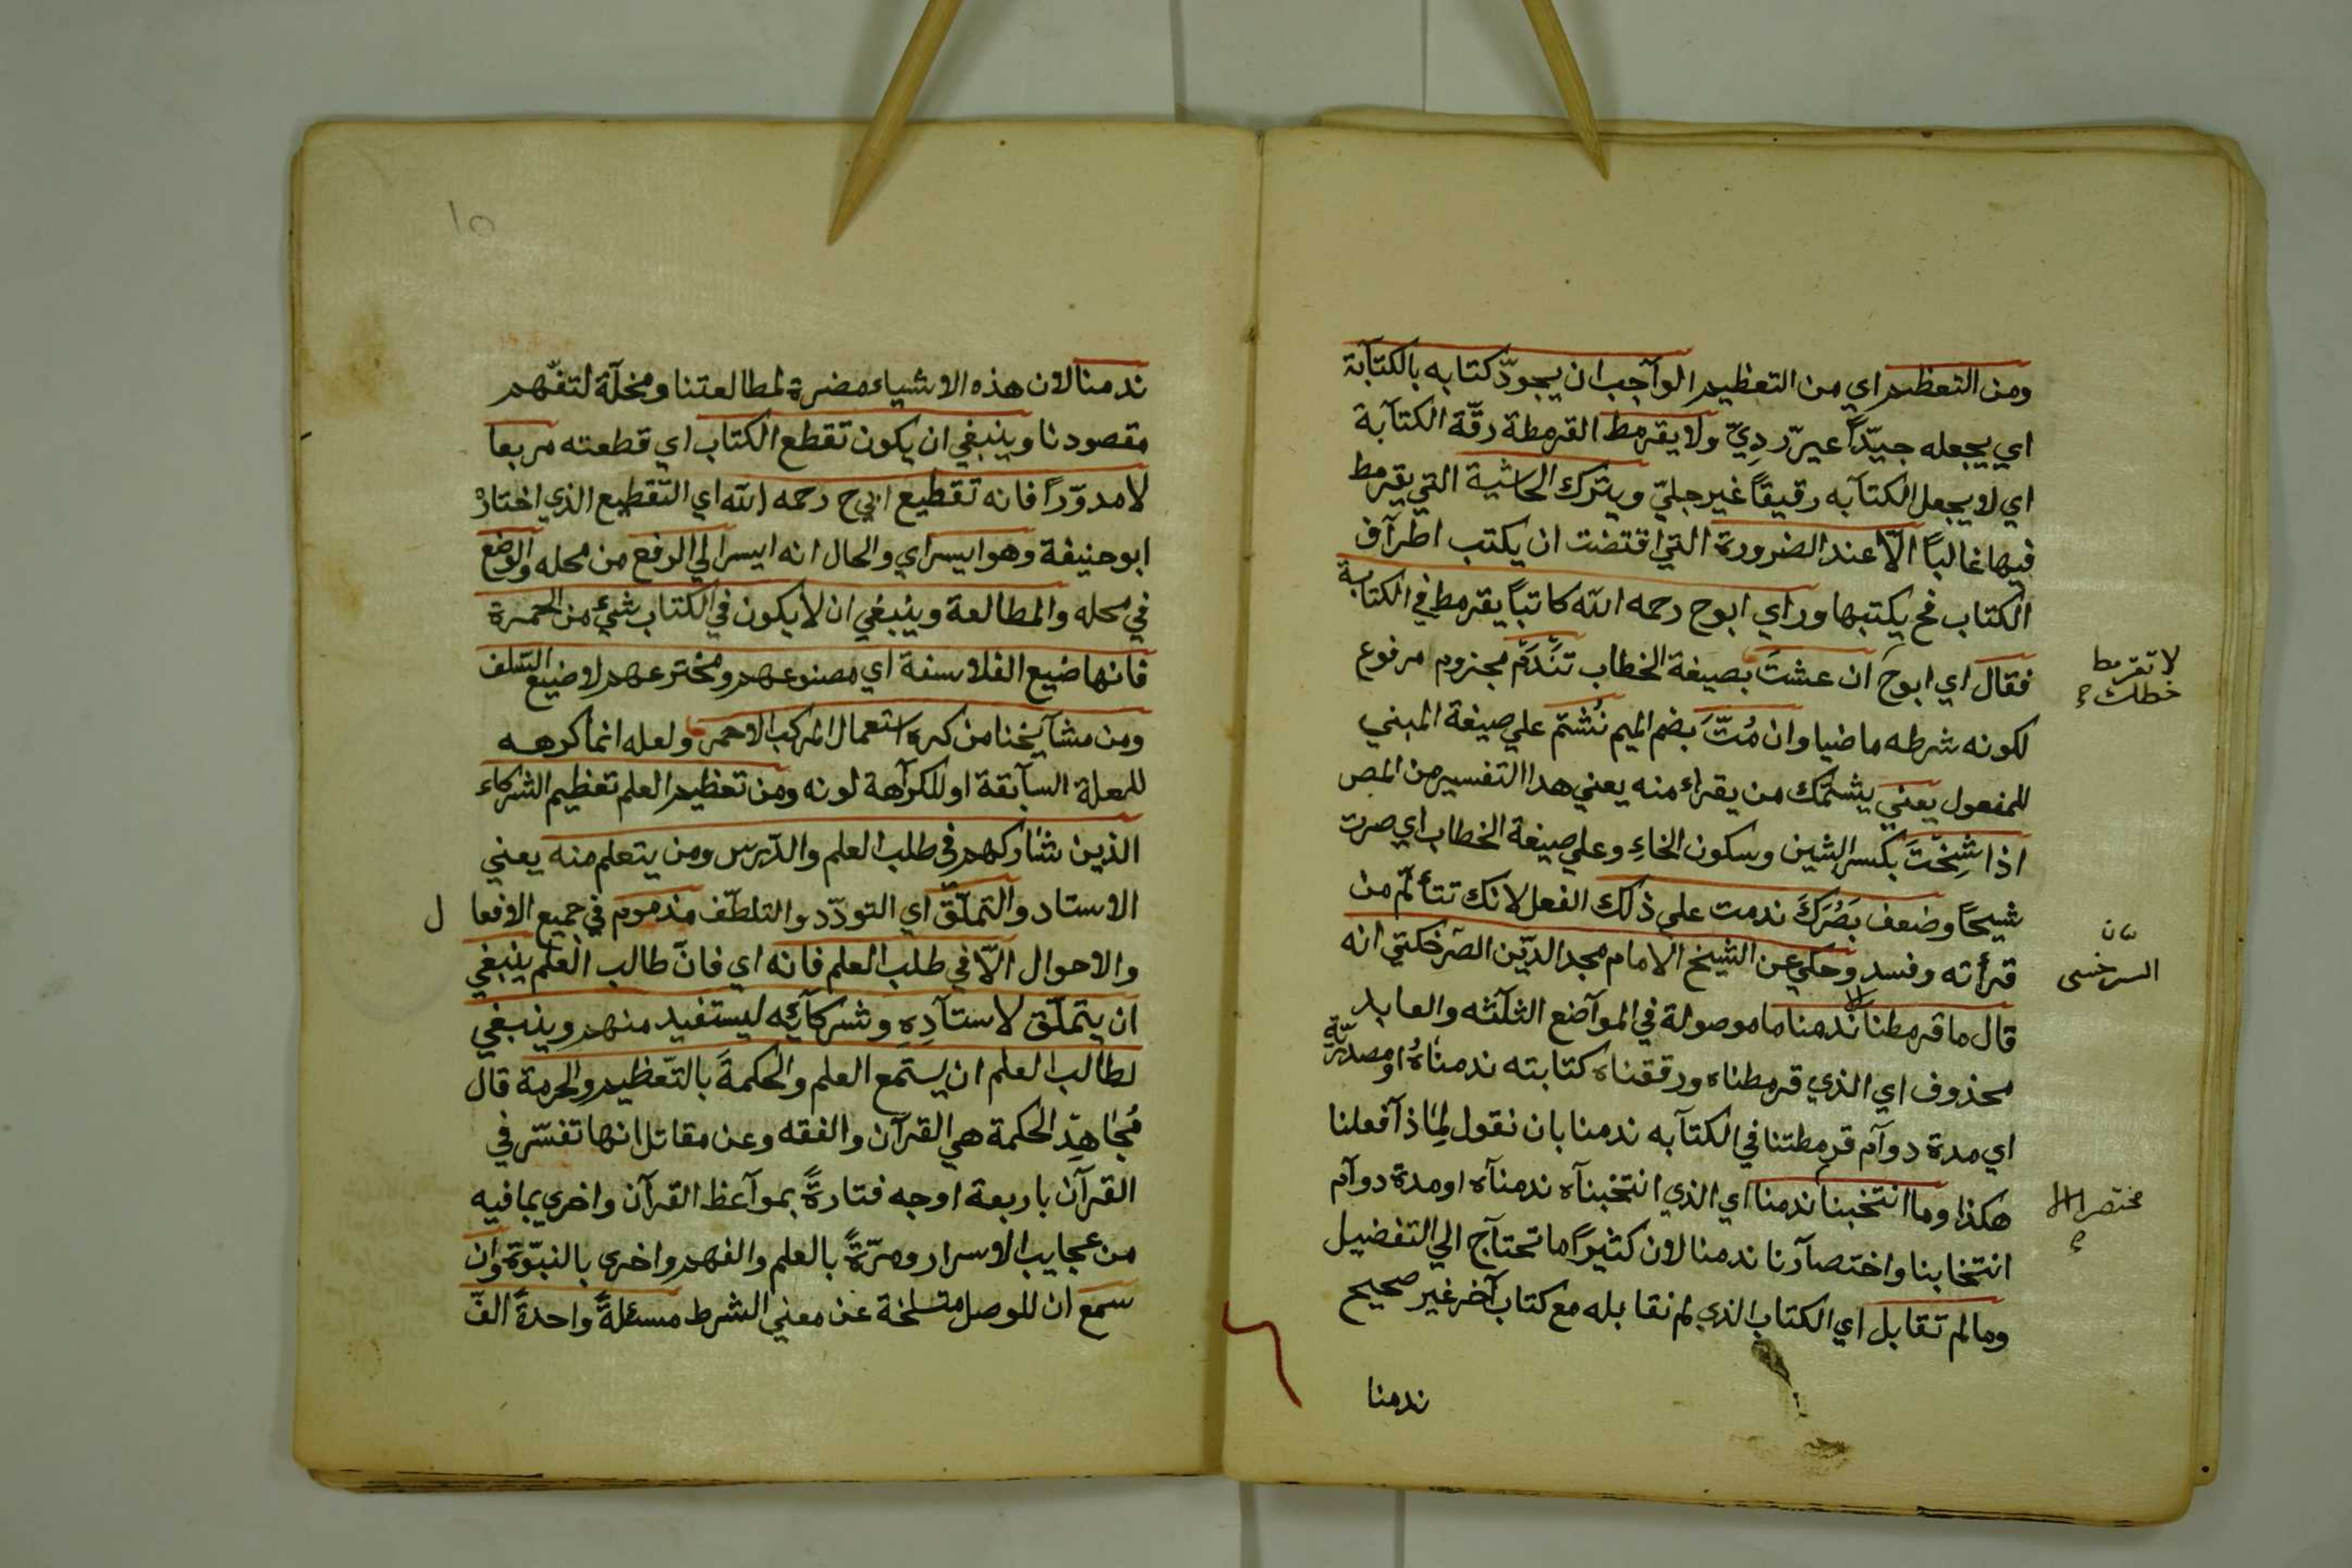 ومن التعظيم اي من التعظيم الوآجب ان يجودّ كتابه بالكتآبة
اي يجعله جيّداً غيرّ ردِيّ ولا يقرمط القرمطة رقّة الكتآبة
اي لا يجعل الكتآبه رقيقاً غير جليّ ويترك الحاشية التي يقرمط
فيها غالباً الّا عند الضرورة التي اقتضت ان يكتب اطرآف
الكتاب فح يكتبها وراي ابوح رحمه الله كاتباً يقرمط في الكتابة
فقال اي ابوح ان عشتَ بصيغة الخطاب تَنَدَّم مجزوم مرفوع
لكونه شرطه ماضيا وان مُتَّ بضم الميم نُشتم علي صيغة المبني
للمفعول يعني يشتمك من يقراء منه يعني هدا التفسير من المص
اذا شِخْتَ بكسر الشين وسكون الخاءِ وعلي صيغة الخطاب اي صرت
شيحاً وضعف بَصَرَكَ ندمت على ذلك الفعل لانك تتألّم من
قرأته وفسد وحكي عن الشيخ الامام مجد الدّين الصّرخكتي انه
قال ما قرمطنا الا ندمنا ما موصولة في الموآضع الثلثه والعايد
محذوف اي الذي قرمطناه ورققناه كتابته ندمناهُ او مصدريّة
اي مدة دوآم قرمطتنا في الكتآبه ندمنا بان نقول لِمَاذآ فعلنا
هكذا وما انتخبنا ندمنا اي الذي انتخبنآه ندمنآه او مدة دوآم
انتخابنا واختصآرنا ندمنا لان كثيراً ما تحتآج الي التفضيل
وما لم تقابل اي الكتاب الذي لم نقابله مع كتاب آخر غير صحيح
ندمنا
لا تقرمط
خطك
السرخسى
مختصر
١٥
ندمنا لان هذه الاشياء مضرة لمطالعتنا ومخلّة لتفّهم
مقصودنا وينبغي ان يكون تقطع الكتاب اي قطعته مربعا
لا مدوّراً فانه تقطيع ابي ح رحمه الله اي التّقطيع الذي اختاره
ابوحنيفة وهو ايسر اي والحال انه ايسر الي الرفع من محله والوضع
في محله والمطالعة وينبغي ان لا يكون في الكتاب شئ من الحمرة
فانها ضيع الفلاسفة اي مصنوعهم ومخترعهم لا ضيع السّلف
ومن مشآيخنا من كره استعمال المركب الاحمر ولعله انما كرهه
للعلة السآبقة او للكرآهة لونه ومن تعظيم العلم تعظيم الشركاء
الذين شاركهم في طلب العلم والدّرس ومن يتعلم منه يعني
الاستاد والتملّق اي التودّد والتلطّف مذموم في جميع الافعا ل
والاحوال الّا في طلب العلم فانه اي فانّ طالب العلم ينبغي
ان يتملّق لاستآدِهِ وشركآئِه ليستفيد منهم وينبغي
لطالب العلم ان يستمع العلم والحكمةَ بالتّعظيم والحرمة قال
مُجاهدِ الحكمة هي القرآن والفقه وعن مقاتل انها تفسّر في
القرآن باربعة اوجه فتارةً بموآعظ القرآن واخري بما فيه
من عجايب الاسرار ومرّةً بالعلم والفهم واخري بالنبوّة وان
سمع ان للوصل متسلخة عن معني الشرط مسئلةً واحدةً الفّ